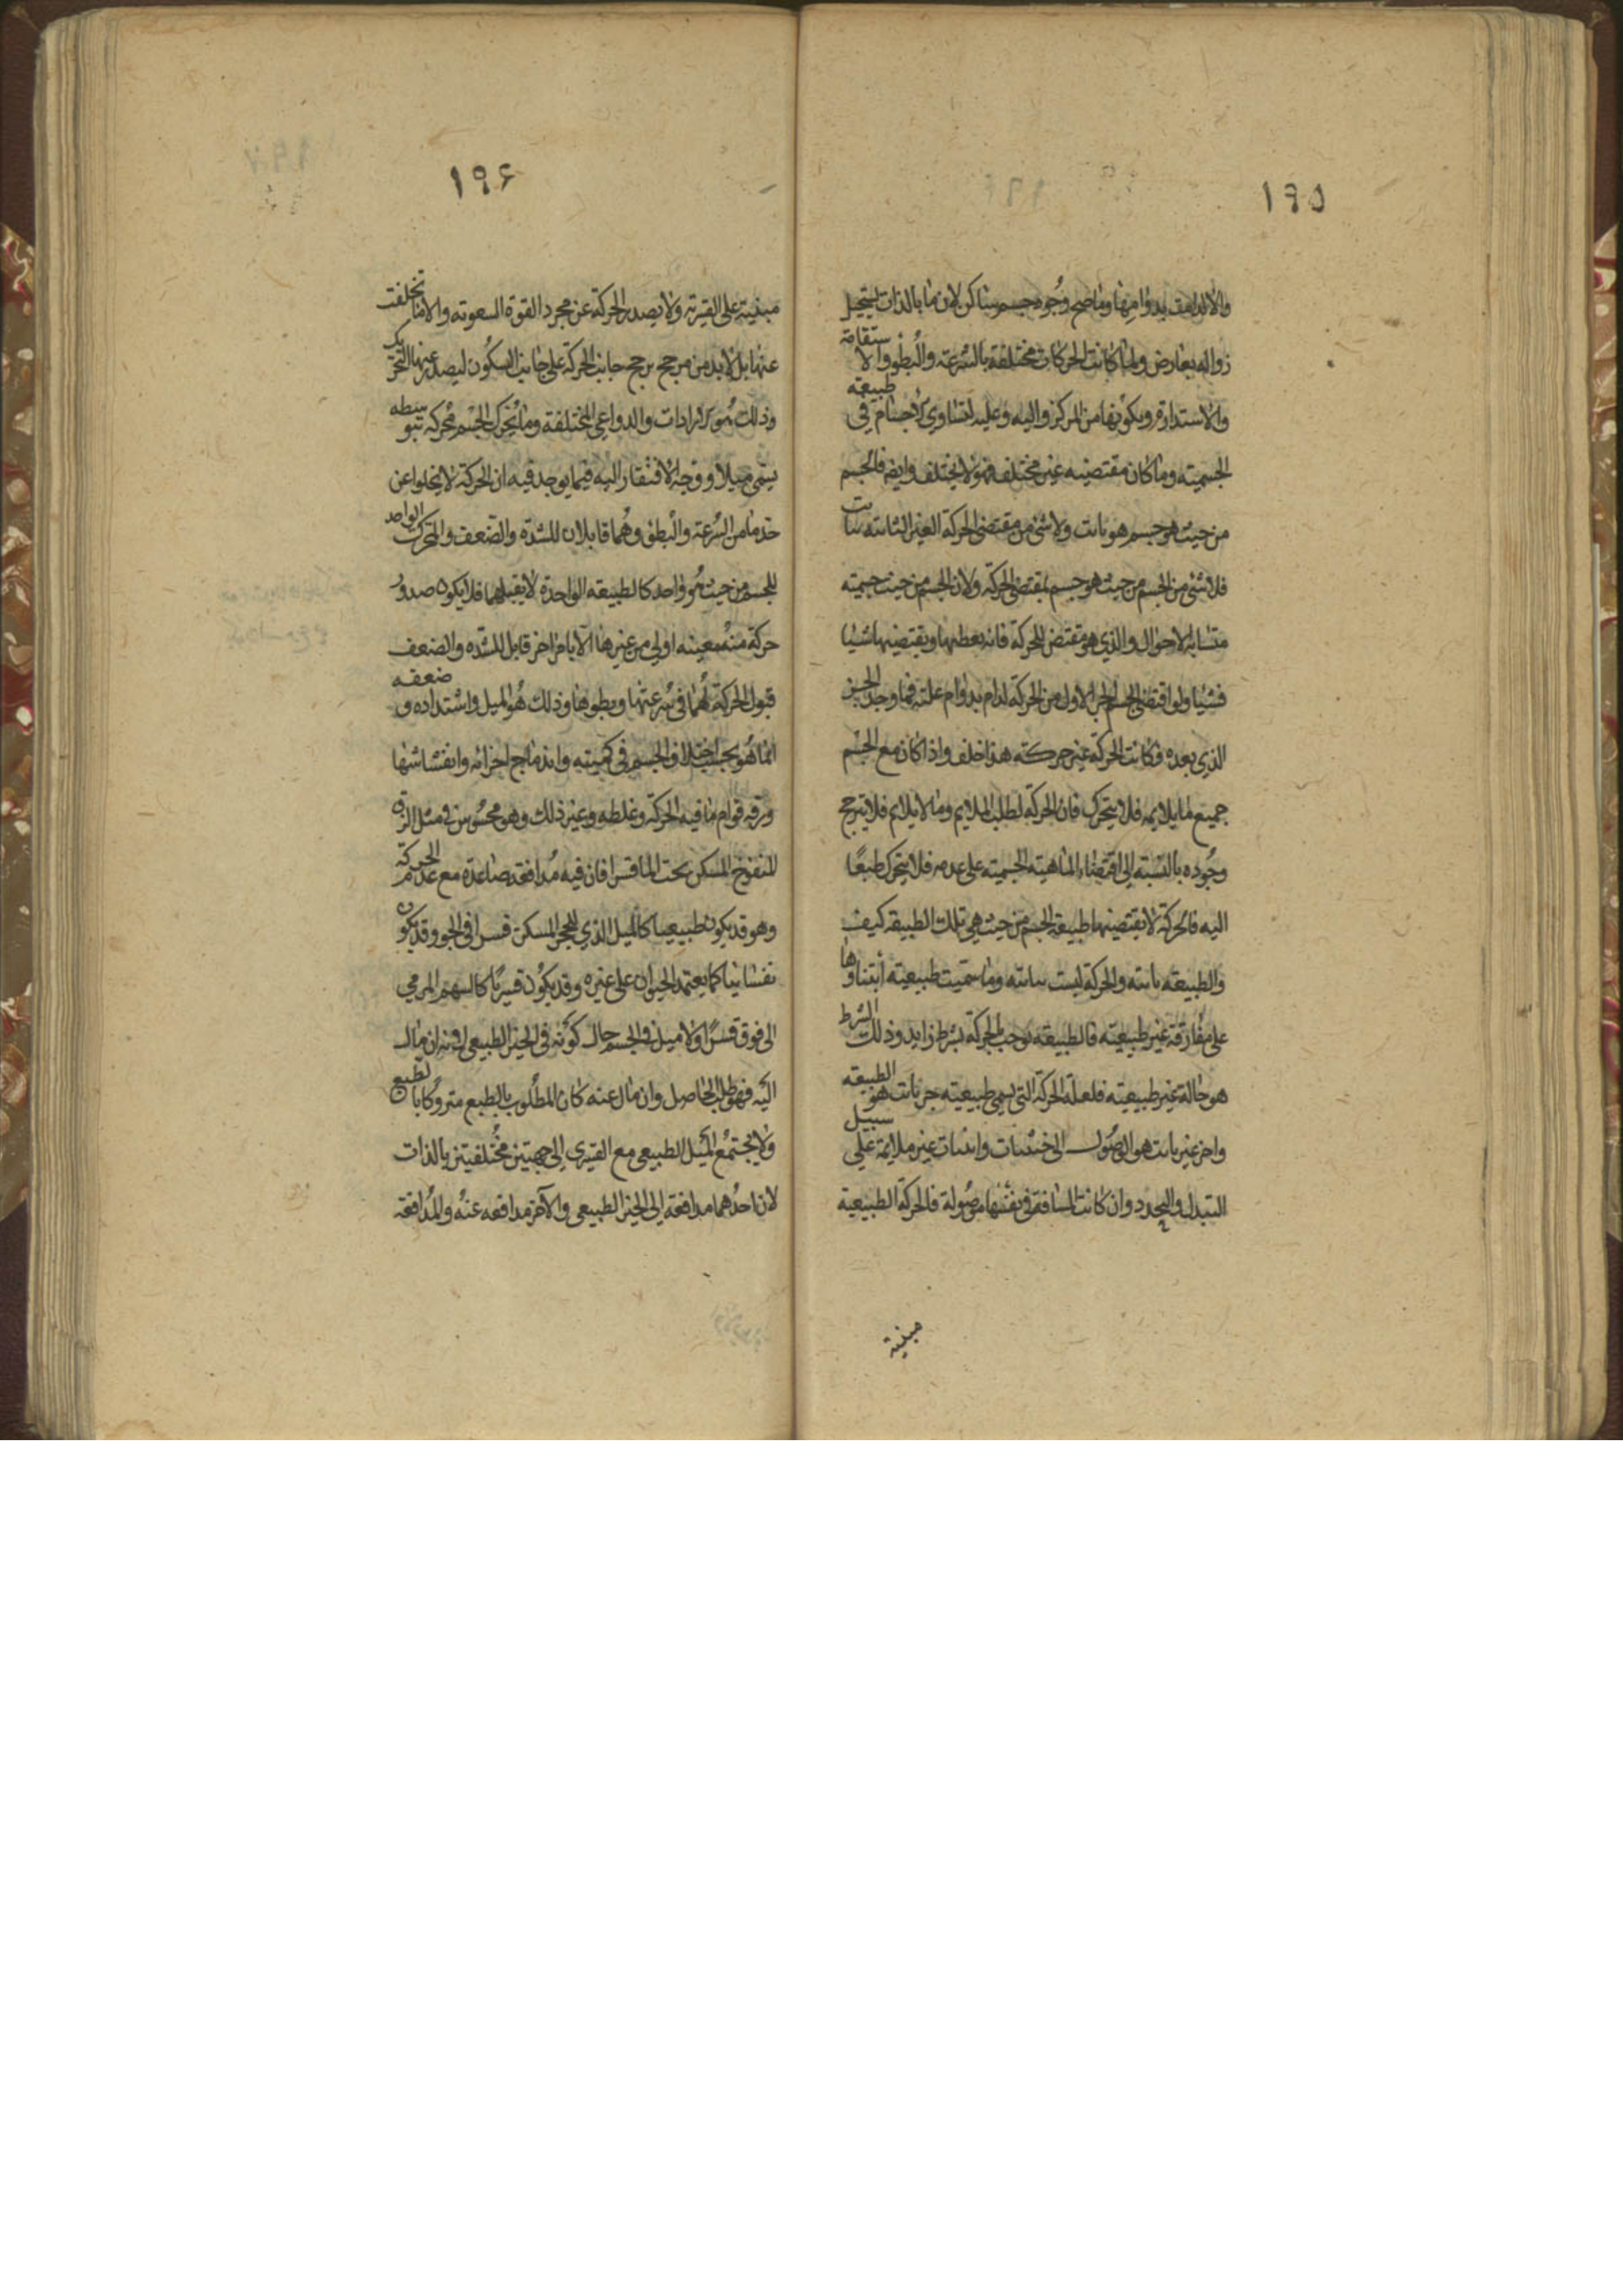 ١٩٥
والا لدامت بدوامها وما صح وجود جسم ساكن لان ما بالذات يستحيل
زواله بعارض ولما كانت الحركات مختلفة بالسرعة والبطوء والاستقامة
والاستدارة وبكونها من المركز واليه وعليه لتساوي الاجسام في طبيعة
الجسمية وما كان مقتضيه غير مختلف فهو لا يختلف وايض فالجسم
من حيث هو جسم هو ثابت ولا شئ من مقتضى الحركة الغير الثابتة ثابت
فلا شئ من الجسم من حيث هو جسم بمقتضى الحركة ولان الجسم من حيث جسميته
متشابه الاحوال والذي هو مقتض للحركة فانه يعطيها ويقتضيها شيئا
فشيئا ولو اقتضى الجسم الجزء الاول من الحركة لدام بدوام علته فما وجد الجزء
الذي بعده فكانت الحركة غير حركة هذا خلف واذا كان مع الجسم
جميع ما يلائمه فلا يتحرك فان الحركة لطلب الملايم وما لا يلايم فلا يترجح
وجوده بالنسبة الى اقتضاء الماهية الجسمية على عدمه فلا يتحرك طبعًا
اليه فالحركة لا يقتضيها طبيعة الجسم من حيث هي تلك الطبيعة كيف
والطبيعة ثابته والحركة ليست بثابته وما سميت طبيعية ابتناوها
على مفارقة غير طبيعية فالطبيعة توجب الحركة بشرط زايد وذلك الشرط
هو حالة غير طبيعية فلعلة الحركة التي تسمى طبيعية جزء ثابت هو الطبيعة
واخر غير ثابت هو الوصول الى حيثيات واينيات غير ملايمة على سبيل
التبدل والتجدد وان كانت المسافة في نفسها موصولة فالحركة الطبيعية
مبنية
١٩۶
مبنية على القسرية ولا يصدر الحركة عن مجرد القوة الشعورية والا ما تخلفت
عنها بل لا بد من مرجح يرجح جانب الحركة على جانب السكون ليصدر عنها التحريك
وذلك هو الارادات والدواعي المختلفة وما يحرك الجسم محركه بتوسطه
يسمى ميلا ووجه الافتقار اليه فيما يوجد فيه ان الحركة لا يخلوا عن
حد ما من السرعة والبطؤ وهما قابلان للشدة والضعف والمحرك الواحد
للجسم من حيث هو واحد كالطبيعة الواحدة لا يقبلهما فلا يكون صدور
حركة منه معينه اولى من غيرها الا بامر اخر قابل للشده والضعف
قبول الحركة لهما في سرعتها وبطوها وذلك هو الميل واشتداده وضعفه
انما هو بحسب اختلاف الجسم في كميته واندماج اجزائه وانفشاشها
ورقه قوام ما فيه الحركة وغلظه وغير ذلك وهو محسوس في مثل الزق
المنفوخ المسكن تحت الماء قسرا فان فيه مدافعة صاعدة مع عدم الحركة
وهو قد يكون طبيعيا كالميل الذي للحجر المسكن قسرا في الجو وقد يكون
نفسانيا كما يعتمد الحيوان على غيره وقد يكون قسريًا كالسهم المرمي
الى فوق قسرًا ولا ميل في الجسم حال كونه في الحيز الطبيعي لانه ان مال
اليه فهو طلب الحاصل وان مال عنه كان المطلوب بالطبع متروكا بالطبع
ولا يجتمع الميل الطبيعي مع القسري الى جهتين مختلفتين بالذات
لان احدهما مدافعة الى الحيز الطبيعي والآخر مدافعه عنه والمدافعة